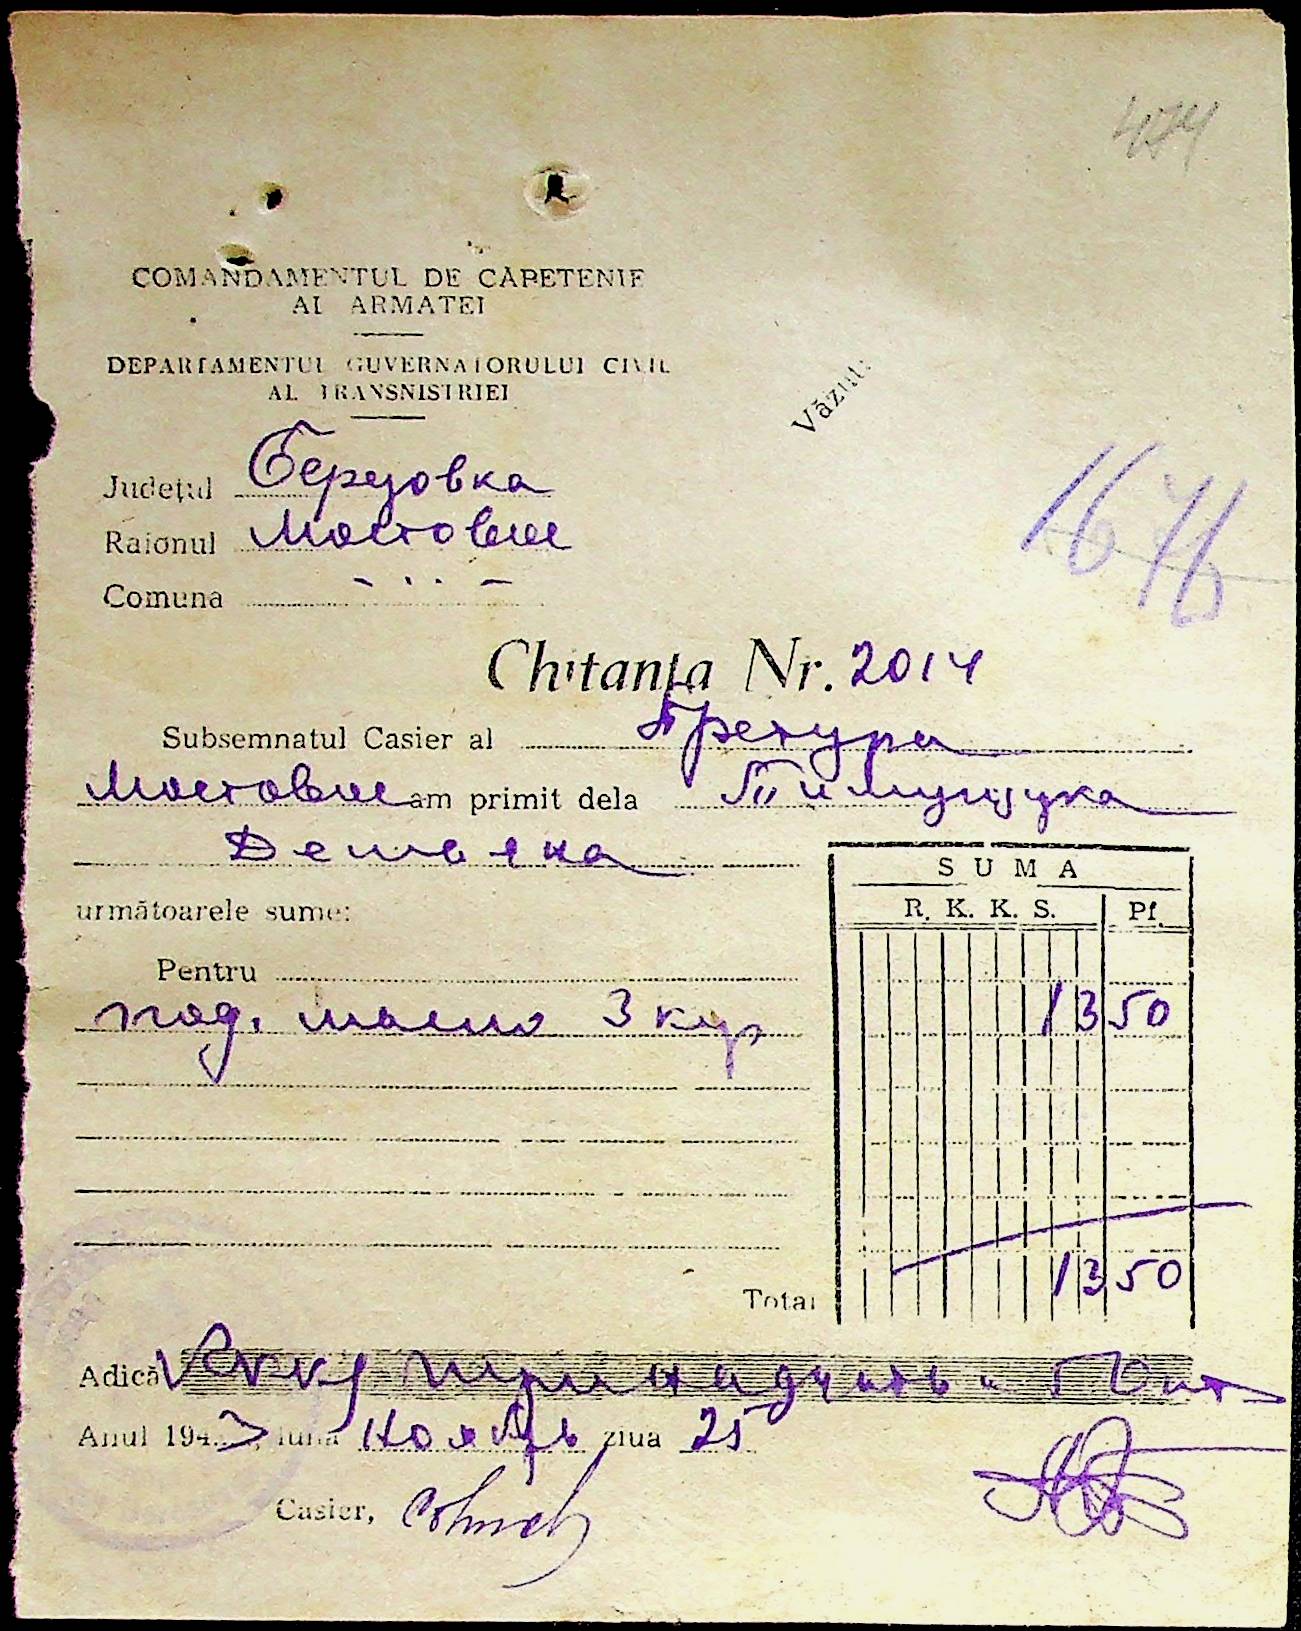 474
COMANDAMENTUL DE CAPETENIE
AL ARMATEI
DEPARTAMENTUL GUVERNATORULUI CIVIL
AL TRANSNISTRIEI
Văzut:
Județul Березовка
Raionul Мостовые
Comuna - . . . -
1676
Chitanța Nr. 2014
Subsemnatul Casier al Претура
Мостовые am primit dela Тимущука
Демьяна
următoarele sume:
SUMA
R. K. K. S. Pf.
Pentru
под. масло 3 кур 13 50
Total 13 50
Adică тринадцать и 50 пф
Anul 1943, luna Ноябрь ziua 25
Casier,